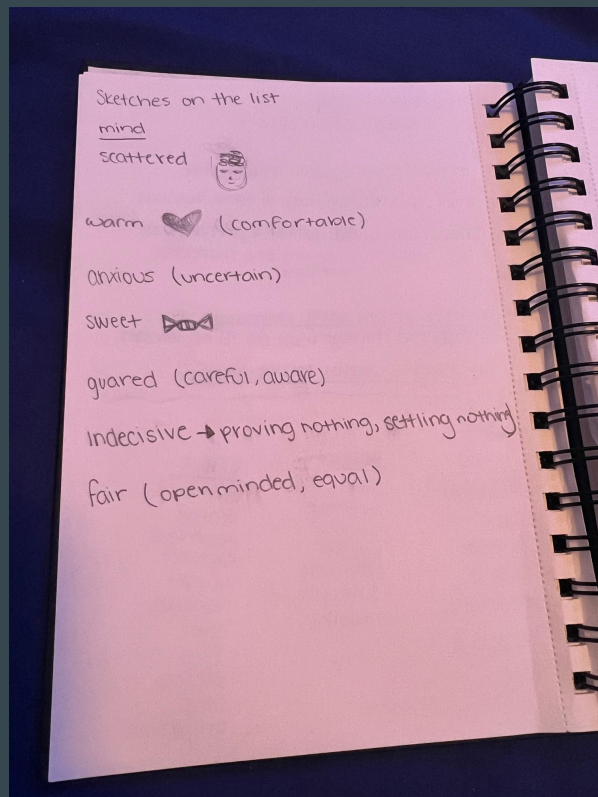 Sketches on the list
mind
scattered
warm (comfortable)
anxious (uncertain)
sweet
guared (careful, aware)
indecisive → proving nothing, settling nothing
fair (openminded, equal)